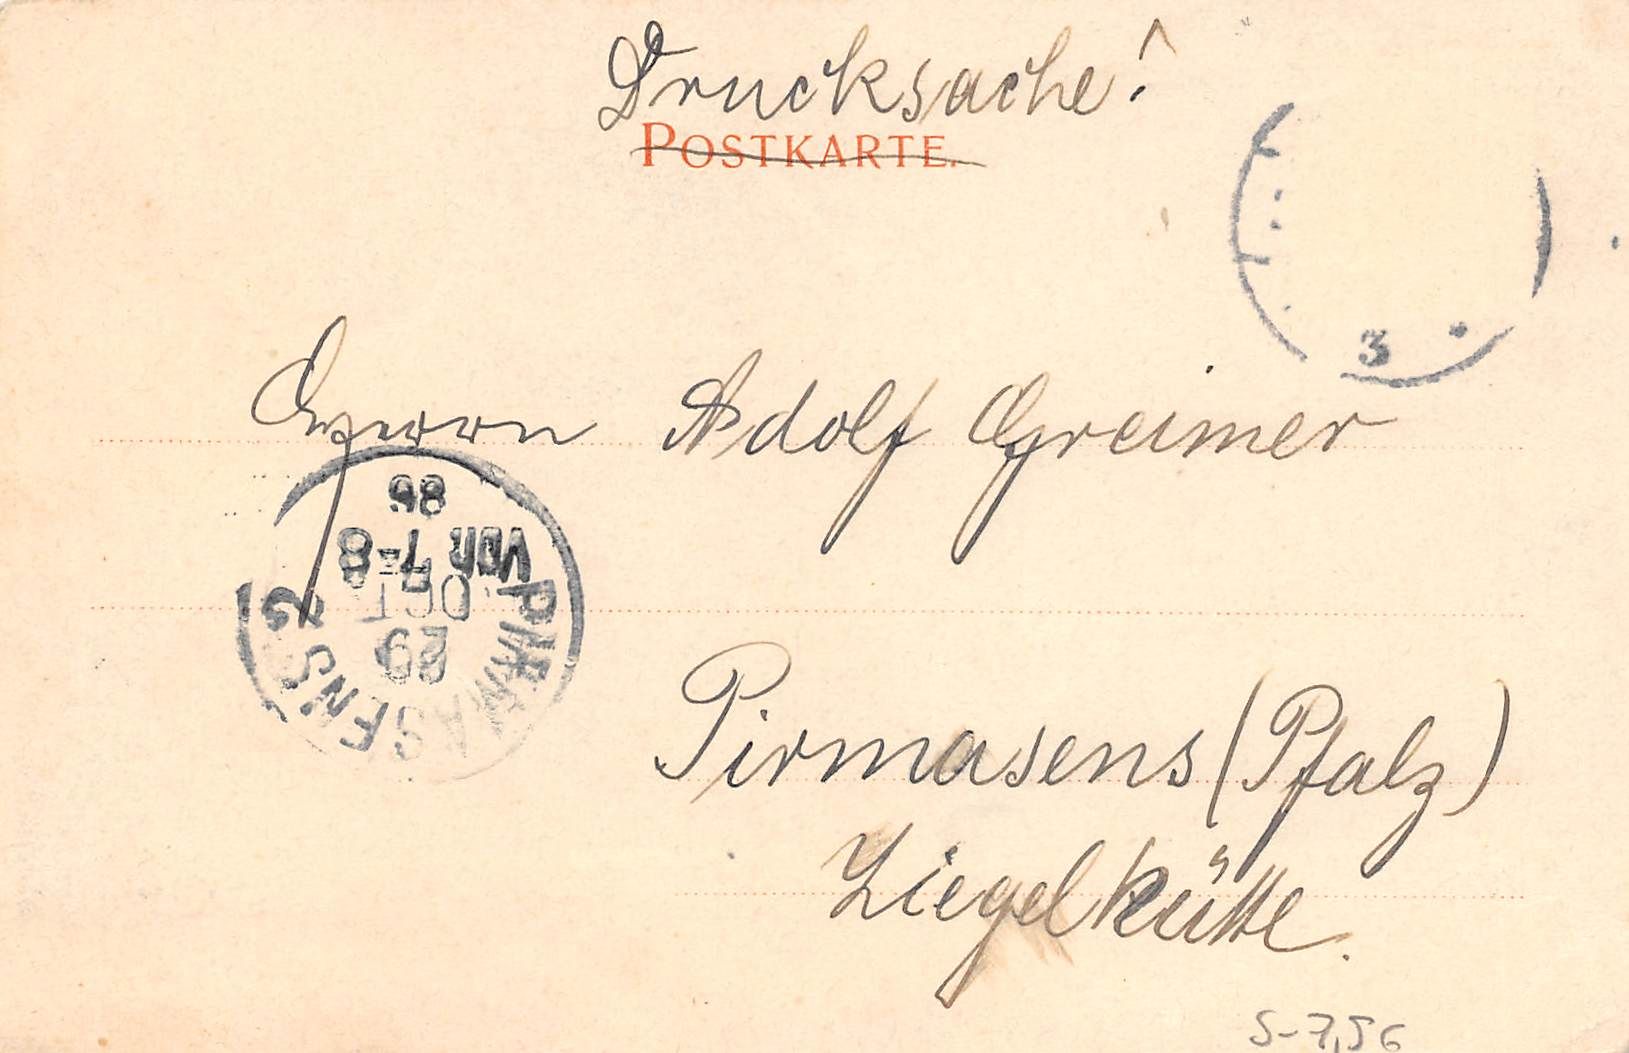 Drucksache!
POSTKARTE.
3
Herrn Adolf Greimer
PIRMASENS 2
OCT
VOR 7-8
98
Pirmasens (Pfalz)
Ziegelhütte.
S-7,56